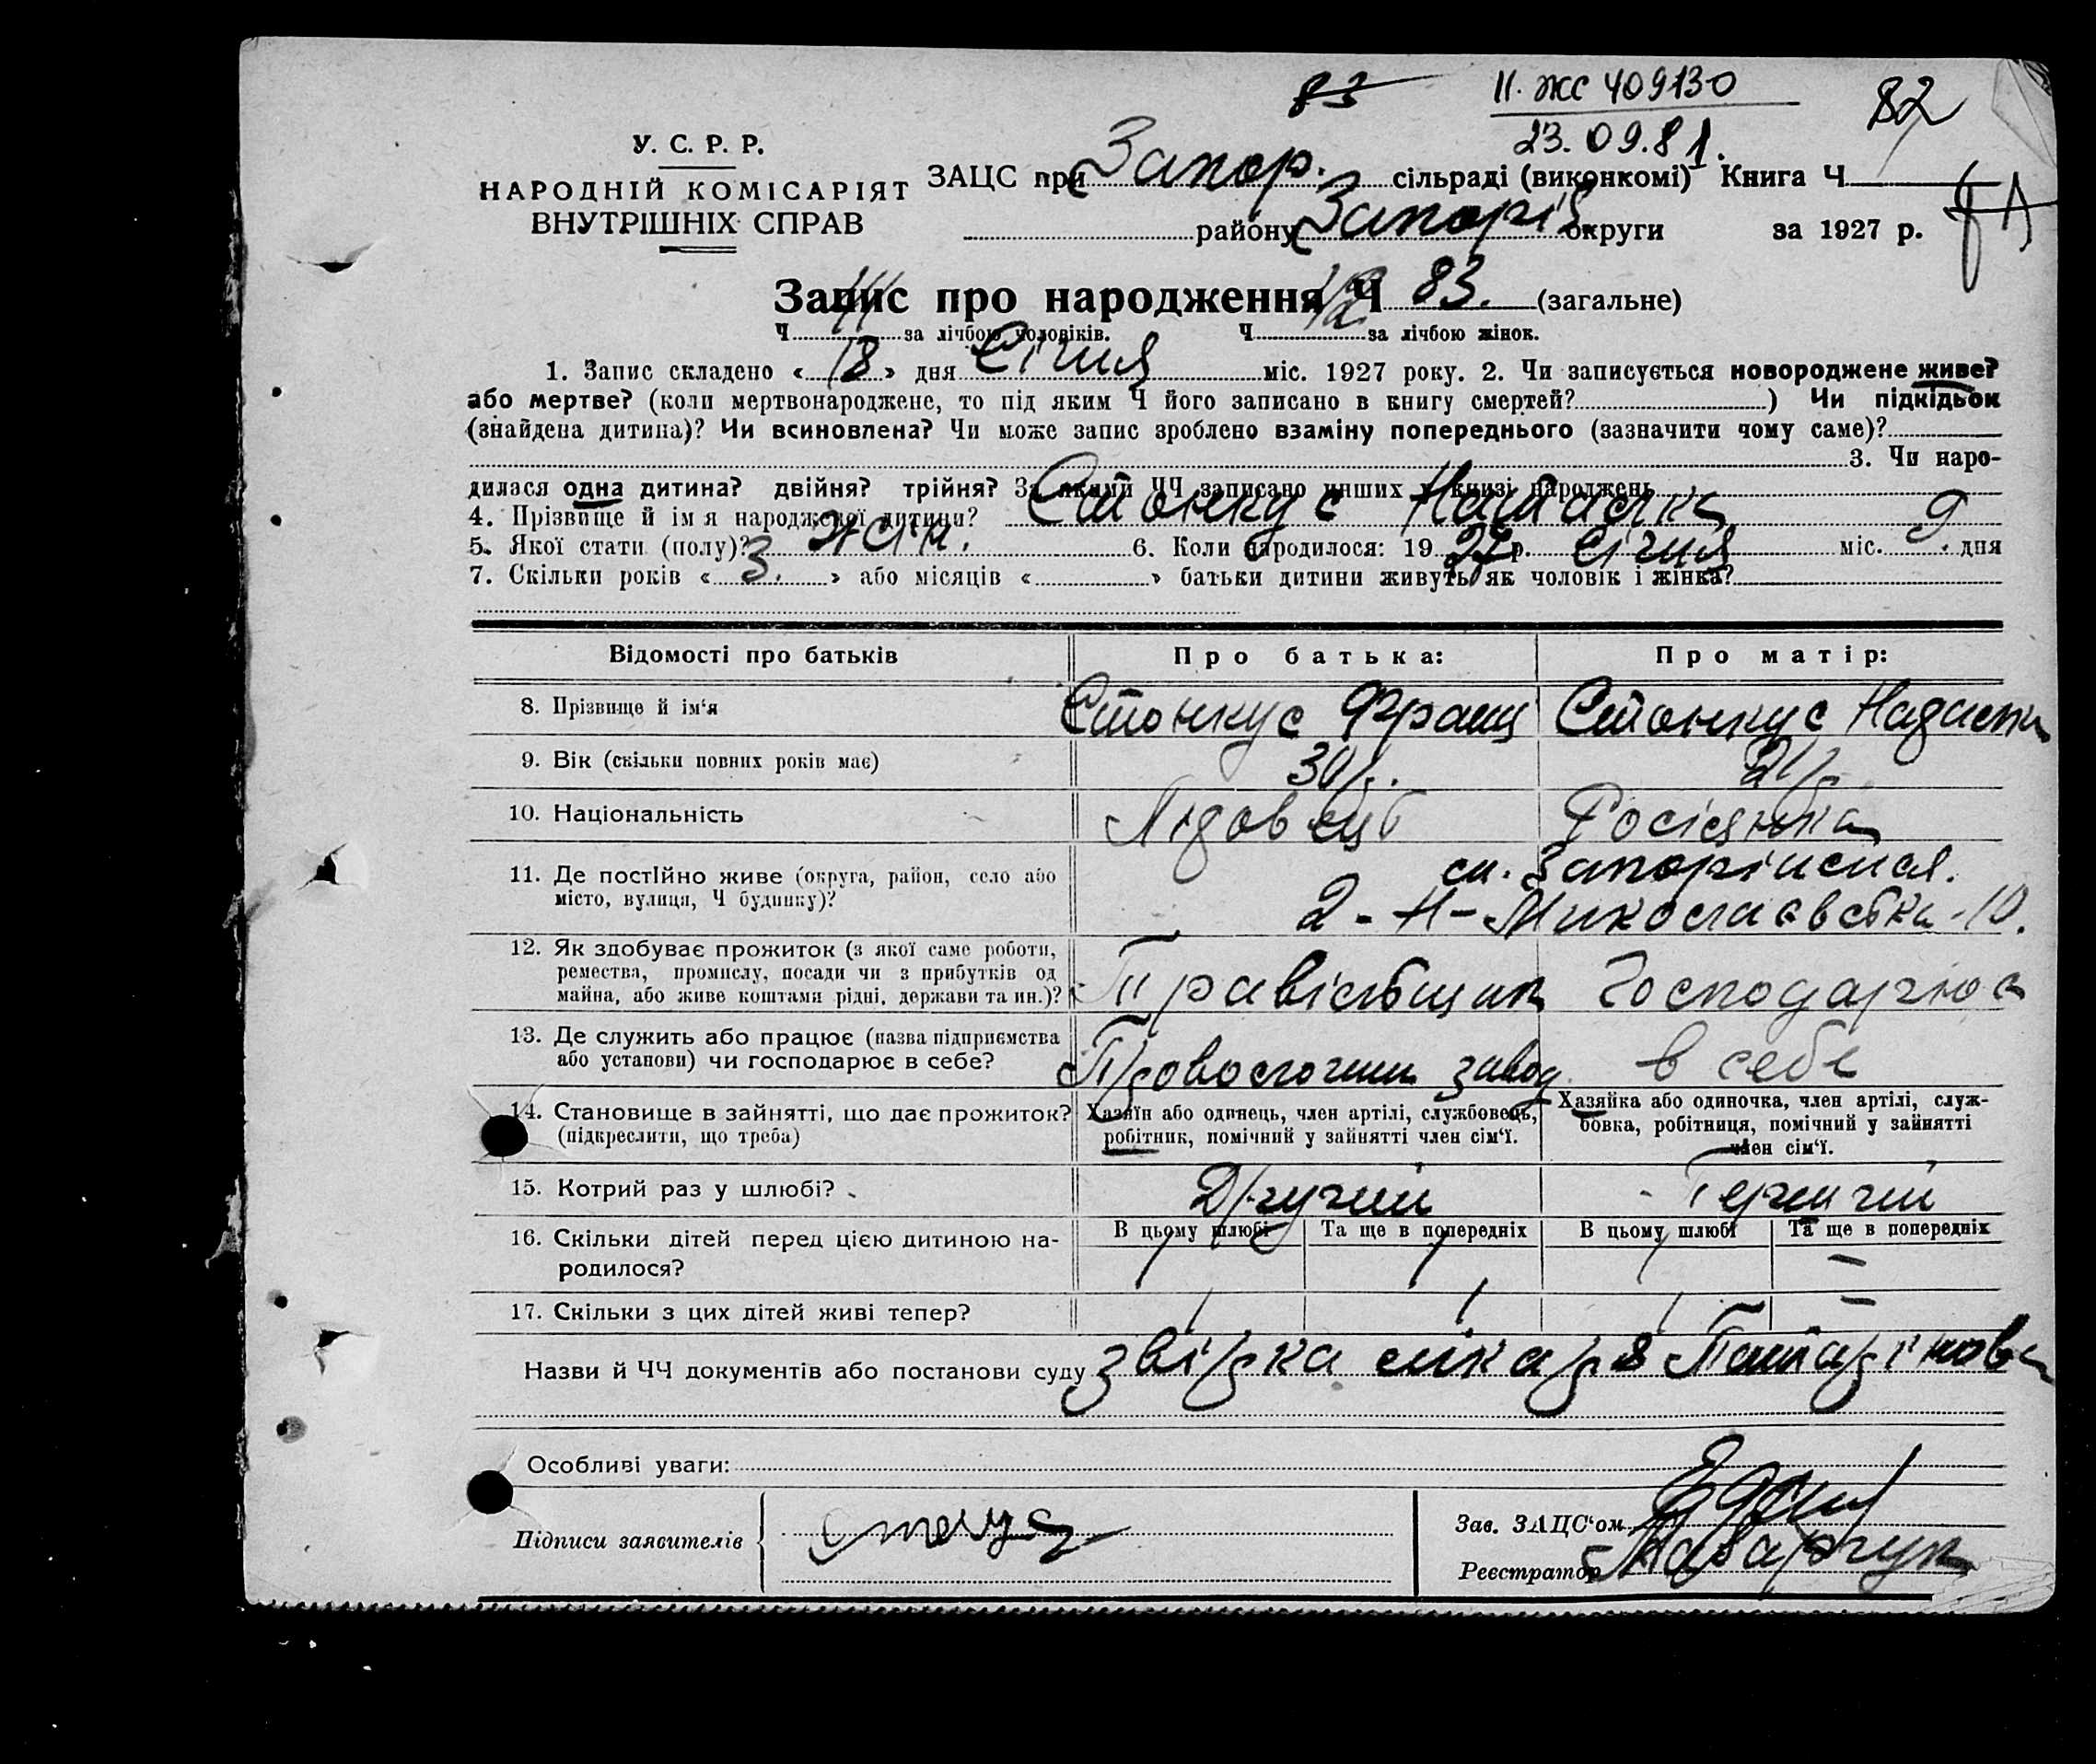 83
II. ЖС 409130
82
23.09.81.
У. С. Р. Р.
НАРОДНІЙ КОМІСАРІЯТ
ВНУТРІШНІХ СПРАВ
ЗАЦС при Запор. сільраді (виконкомі) Книга Ч
району Запоріз. округи за 1927 р.
Запис про народження Ч 83. (загальне)
Ч за лічбою чоловіків. Ч за лічбою жінок.
1. Запис складено « 18 » дня Січня міс. 1927 року. 2. Чи записується новороджене живе?
або мертве? (коли мертвонароджене, то під яким Ч його записано в книгу смертей? ) Чи підкідьок
(знайдена дитина)? Чи всиновлена? Чи може запис зроблено взаміну попереднього (зазначити чому саме)?
3. Чи наро-
дилася одна дитина? двійня? трійня? За якими ЧЧ записано инших у книзі народжень
4. Прізвище й ім'я народженої дитини? Стонкус
5. Якої стати (полу)? жін. 6. Коли народилося: 19 27 р. Січня міс. 9 дня
7. Скільки років « 3. » або місяців « » батьки дитини живуть як чоловік і жінка?
Відомості про батьків Про батька: Про матір:
8. Прізвище й ім'я Стонкус Франц Стонкус
9. Вік (скільки повних років має) 30 р. 21 р.
10. Національність Росіянка
11. Де постійно живе (округа, район, село або
місто, вулиця, Ч будинку)?
ст. Запоріжжя.
2-Н-Миколаєвська-10.
12. Як здобуває прожиток (з якої саме роботи,
ремества, промислу, посади чи з прибутків од
майна, або живе коштами рідні, держави та ин.)? Господарює
13. Де служить або працює (назва підприємства
або установи) чи господарює в себе? завод в себе
14. Становище в зайнятті, що дає прожиток?
(підкреслити, що треба)
Хазяїн або одинець, член артілі, службовець,
робітник, помічний у зайнятті член сім'ї.
Хазяйка або одиночка, член артілі, служ-
бовка, робітниця, помічний у зайнятті
член сім'ї.
15. Котрий раз у шлюбі? Другий Перший
16. Скільки дітей перед цією дитиною на-
родилося?
В цьому шлюбі Та ще в попередніх В цьому шлюбі Та ще в попередніх
1 1 1 —
17. Скільки з цих дітей живі тепер? 1 1 1 —
Назви й ЧЧ документів або постанови суду звірка лікаря
Особливі уваги:
Підписи заявителів
Зав. ЗАЦС'ом
Реєстратор